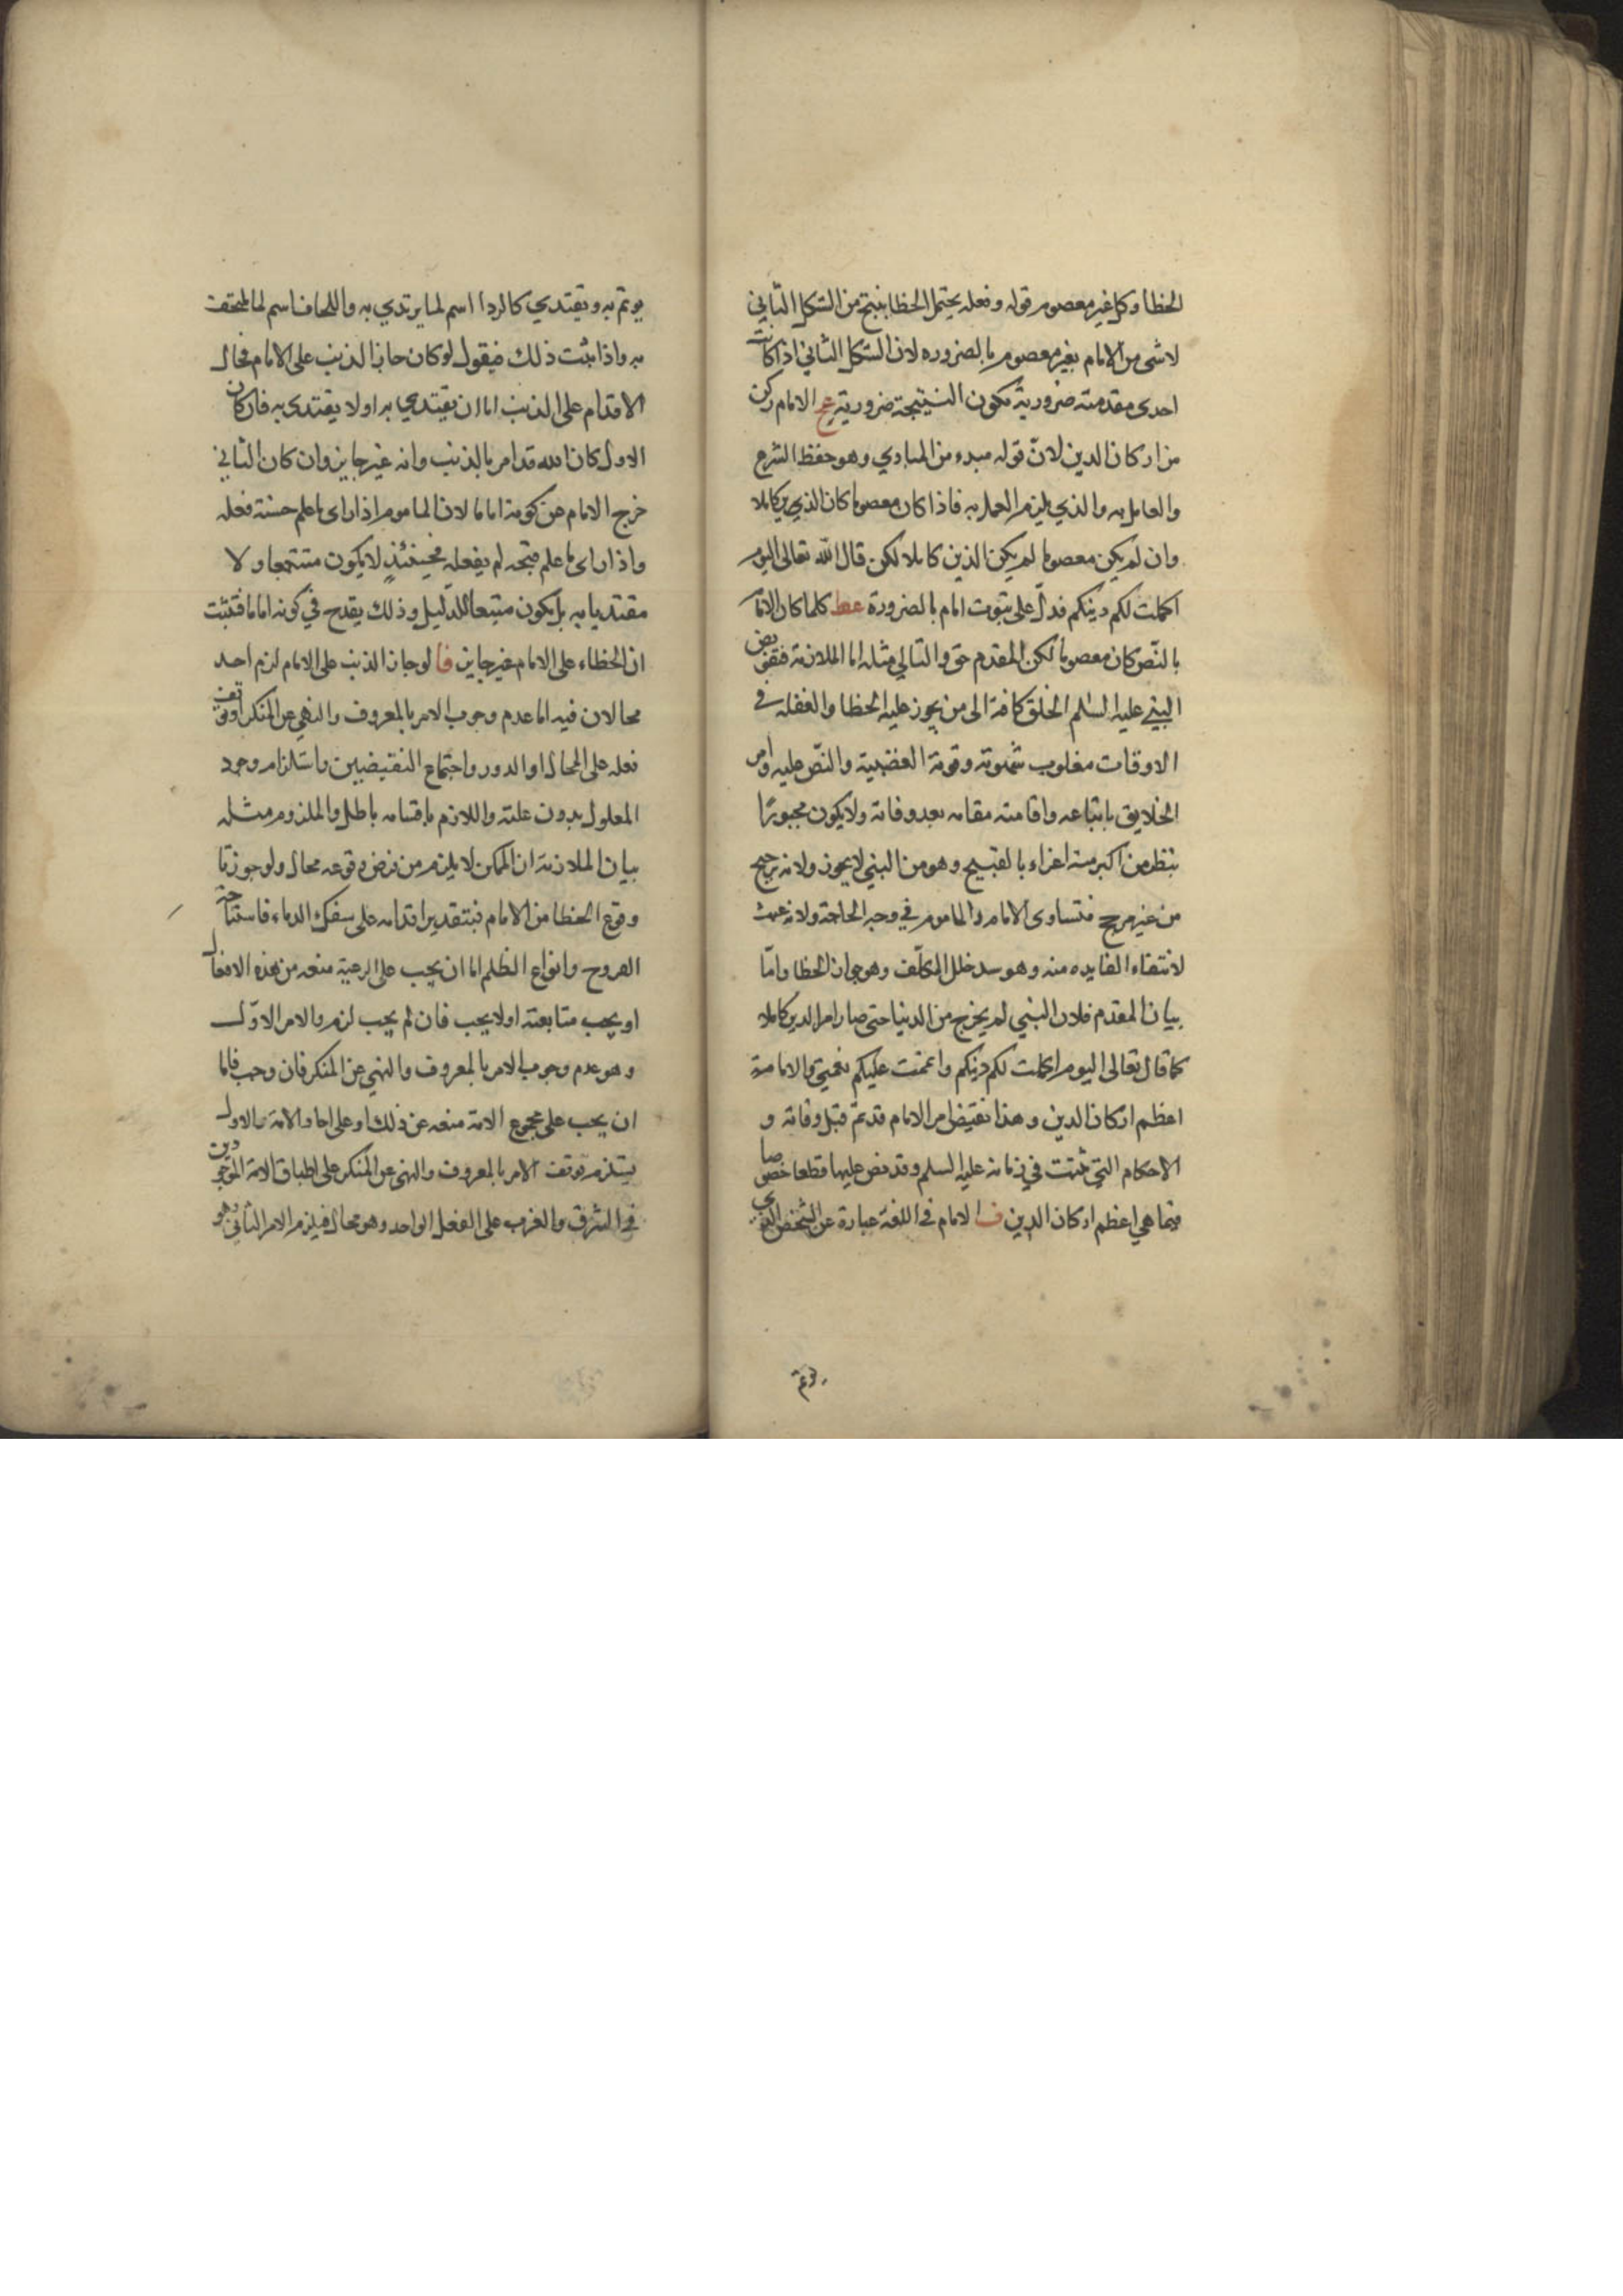 الخطا وكل غير معصوم قوله وفعله يحتمل الخطا ينتج من الشكل الثاني
لا شى من الامام بغير معصوم بالضروره لان الشكل الثاني اذا كانت
احدى مقدمته ضرورية تكون النتيجة ضرورية عح الامام ركن
من اركان الدين لان قوله مبدء من المبادي وهو حفظ الشرع
والعامل به والذي يلزم العمل به فاذا كان معصوما كان الدين كاملا
وان لم يكن معصوما لم يكن الدين كاملا لكن قال الله تعالى اليوم
اكملت لكم دينكم فدل على ثبوت امام بالضرورة عط كلما كان الامام
بالنص كان معصوما لكن المقدم حق والتالي مثله اما الملازمة فتفويض
النبي عليه السلم الخلق كافة الى من يجوز عليه الخطا والغفله في
الاوقات مغلوب شهوته وقوته الغضبية والنص عليه وامر
الخلايق باتباعه واقامته مقامه بعد وفاته ولا يكون مجبورا
بنظر من اكبر منه اغراء بالقبيح وهو من النبي لا يجوز ولانه ترجيح
من غير مرجح فتساوى الامام والماموم في وجه الحاجة ولانه عبث
لانتفاء الفايده منه وهو سد خلل المكلف وهو جواز الخطا واما
بيان المقدم فلان النبي لم يخرج من الدنيا حتى صار امر الدين كاملا
كما قال تعالى اليوم اكملت لكم دينكم واتممت عليكم نعمتي والامامة
اعظم اركان الدين وهذا نقيض امر الامام قد تم قبل وفاته و
الاحكام التي ثبتت في زمانه عليه السلم وقد نص عليها قطعا خصوصا
فيما هي اعظم اركان الدين ف الامام في اللغة عبارة عن الشخص الذي
يوتم
يوتم به ويقتدي كالردا اسم لما يرتدي به واللحاف اسم لما يلتحف
به واذا ثبت ذلك فيقول لو كان جاز الذنب على الامام فحال
الاقدام على الذنب اما ان يقتدي به او لا يقتدى به فان كان
الاول كان الله قد امر بالذنب وانه غير جايز وان كان الثاني
خرج الامام عن كونه اماما لان الماموم اذا راى ما علم حسنه فعله
واذا راى ما علم قبحه لم يفعله فحينئذ لا يكون متتبعا ولا
مقتديا به بل يكون متبعا للدليل وذلك يقدح في كونه اماما فتثبت
ان الخطاء على الامام غير جايز فا لو جاز الذنب على الامام لزم احد
محالات فيه اما عدم وجوب الامر بالمعروف والنهي عن المنكر او توقف
فعله على المحال او الدور واجتماع النقيضين واستلزام وجود
المعلول بدون علته واللازم باقسامه باطل والملزوم مثله
بيان الملازمة ان الممكن لا يلزم من فرض وقوعه محال ولو جوزنا
وقوع الخطا من الامام فبتقدير اقدامه على سفك الدماء فاستباحة
الفروج وانواع الظلم اما ان يجب على الرعية منعه من هذه الافعال
او يجب متابعته او لا يجب فان لم يجب لزم والامر الاول
وهو عدم وجوب الامر بالمعروف والنهي عن المنكر فان وجب فاما
ان يجب على مجموع الامة منعه عن ذلك او على احاد الامة والاول
يستلزم توقف الامر بالمعروف والنهى عن المنكر على اطباق الامة الموجودين
في الشرق والغرب على الفعل الواحد وهو محال فيلزم الامر الثاني وهو